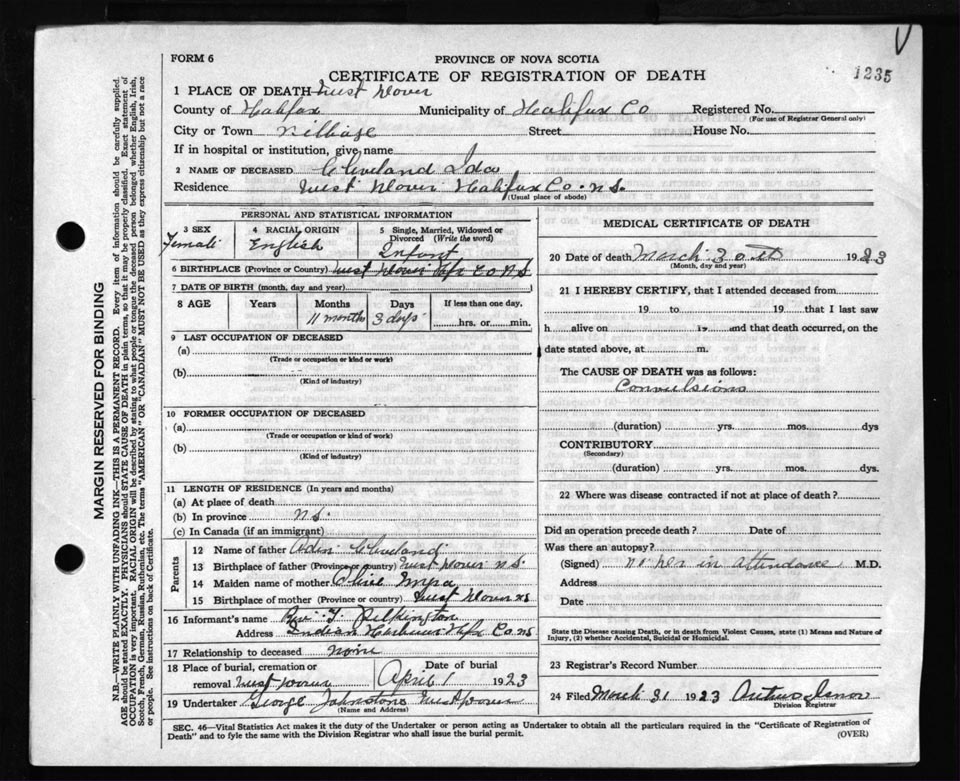 FORM 6
PROVINCE OF NOVA SCOTIA
CERTIFICATE OF REGISTRATION OF DEATH
1235
1 PLACE OF DEATH West Dover
County of Halifax Municipality of Halifax Co Registered No.
(For use of Registrar General only)
City or Town Village Street House No.
If in hospital or institution, give name
2 NAME OF DECEASED Cleveland Ida
Residence West Dover Halifax Co. N.S.
(Usual place of abode)
PERSONAL AND STATISTICAL INFORMATION
3 SEX 4 RACIAL ORIGIN 5 Single, Married, Widowed or Divorced (Write the word)
Female English Infant
6 BIRTHPLACE (Province or Country) West Dover Hfx Co N.S
7 DATE OF BIRTH (month, day and year)
8 AGE Years Months Days If less than one day,
11 months 3 days hrs. or min.
9 LAST OCCUPATION OF DECEASED
(a)
(Trade or occupation or kind or work)
(b)
(Kind of industry)
10 FORMER OCCUPATION OF DECEASED
(a)
(Trade or occupation or kind of work)
(b)
(Kind of industry)
11 LENGTH OF RESIDENCE (In years and months)
(a) At place of death
(b) In province N.S.
(c) In Canada (if an immigrant)
Parents
12 Name of father Aden Cleveland
13 Birthplace of father (Province or country) West Dover N.S.
14 Maiden name of mother Olive
15 Birthplace of mother West Dover NS
16 Informant's name Rev Pilkington
Address Indian Harbour Hfx Co NS
17 Relationship to deceased None
18 Place of burial, cremation or removal West Dover
Date of burial April 1 1923
19 Undertaker George Johnstone West Dover
(Name and Address)
MEDICAL CERTIFICATE OF DEATH
20 Date of death March 30th 1923
(Month, day and year)
21 I HEREBY CERTIFY, that I attended deceased from
19 to 19 that I last saw
h alive on 19 and that death occurred, on the
date stated above, at m.
The CAUSE OF DEATH was as follows:
Convulsions
(duration) yrs. mos. dys
CONTRIBUTORY
(Secondary)
(duration) yrs. mos. dys.
22 Where was disease contracted if not at place of death?
Did an operation precede death? Date of
Was there an autopsy?
(Signed) No in attendance M.D.
Address
Date
State the Disease causing Death, or in death from Violent Causes, state (1) Means and Nature of
Injury, (2) whether Accidental, Suicidal or Homicidal.
23 Registrar's Record Number
24 Filed March 31 1923 Arthur
Division Registrar
SEC. 46—Vital Statistics Act makes it the duty of the Undertaker or person acting as Undertaker to obtain all the particulars required in the "Certificate of Registration of
Death" and to fyle the same with the Division Registrar who shall issue the burial permit.
(OVER)
MARGIN RESERVED FOR BINDING
N.B.—WRITE PLAINLY WITH UNFADING INK—THIS IS A PERMANENT RECORD. Every item of information should be carefully supplied.
AGE should be stated EXACTLY. PHYSICIANS should STATE CAUSE OF DEATH in plain terms, so that it may be properly classified. Exact statement of
OCCUPATION is very important. RACIAL ORIGIN will be described by stating to what people or tongue the deceased person belonged whether English, Irish,
Scotch, French, German, Russian, Ruthenian, etc. The terms "AMERICAN" OR "CANADIAN" MUST NOT BE USED as they express citizenship but not a race
or people. See instructions on back of Certificate.